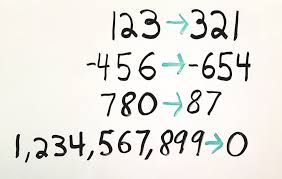 123→321
-456→-654
780→87
1,234,567,899→0